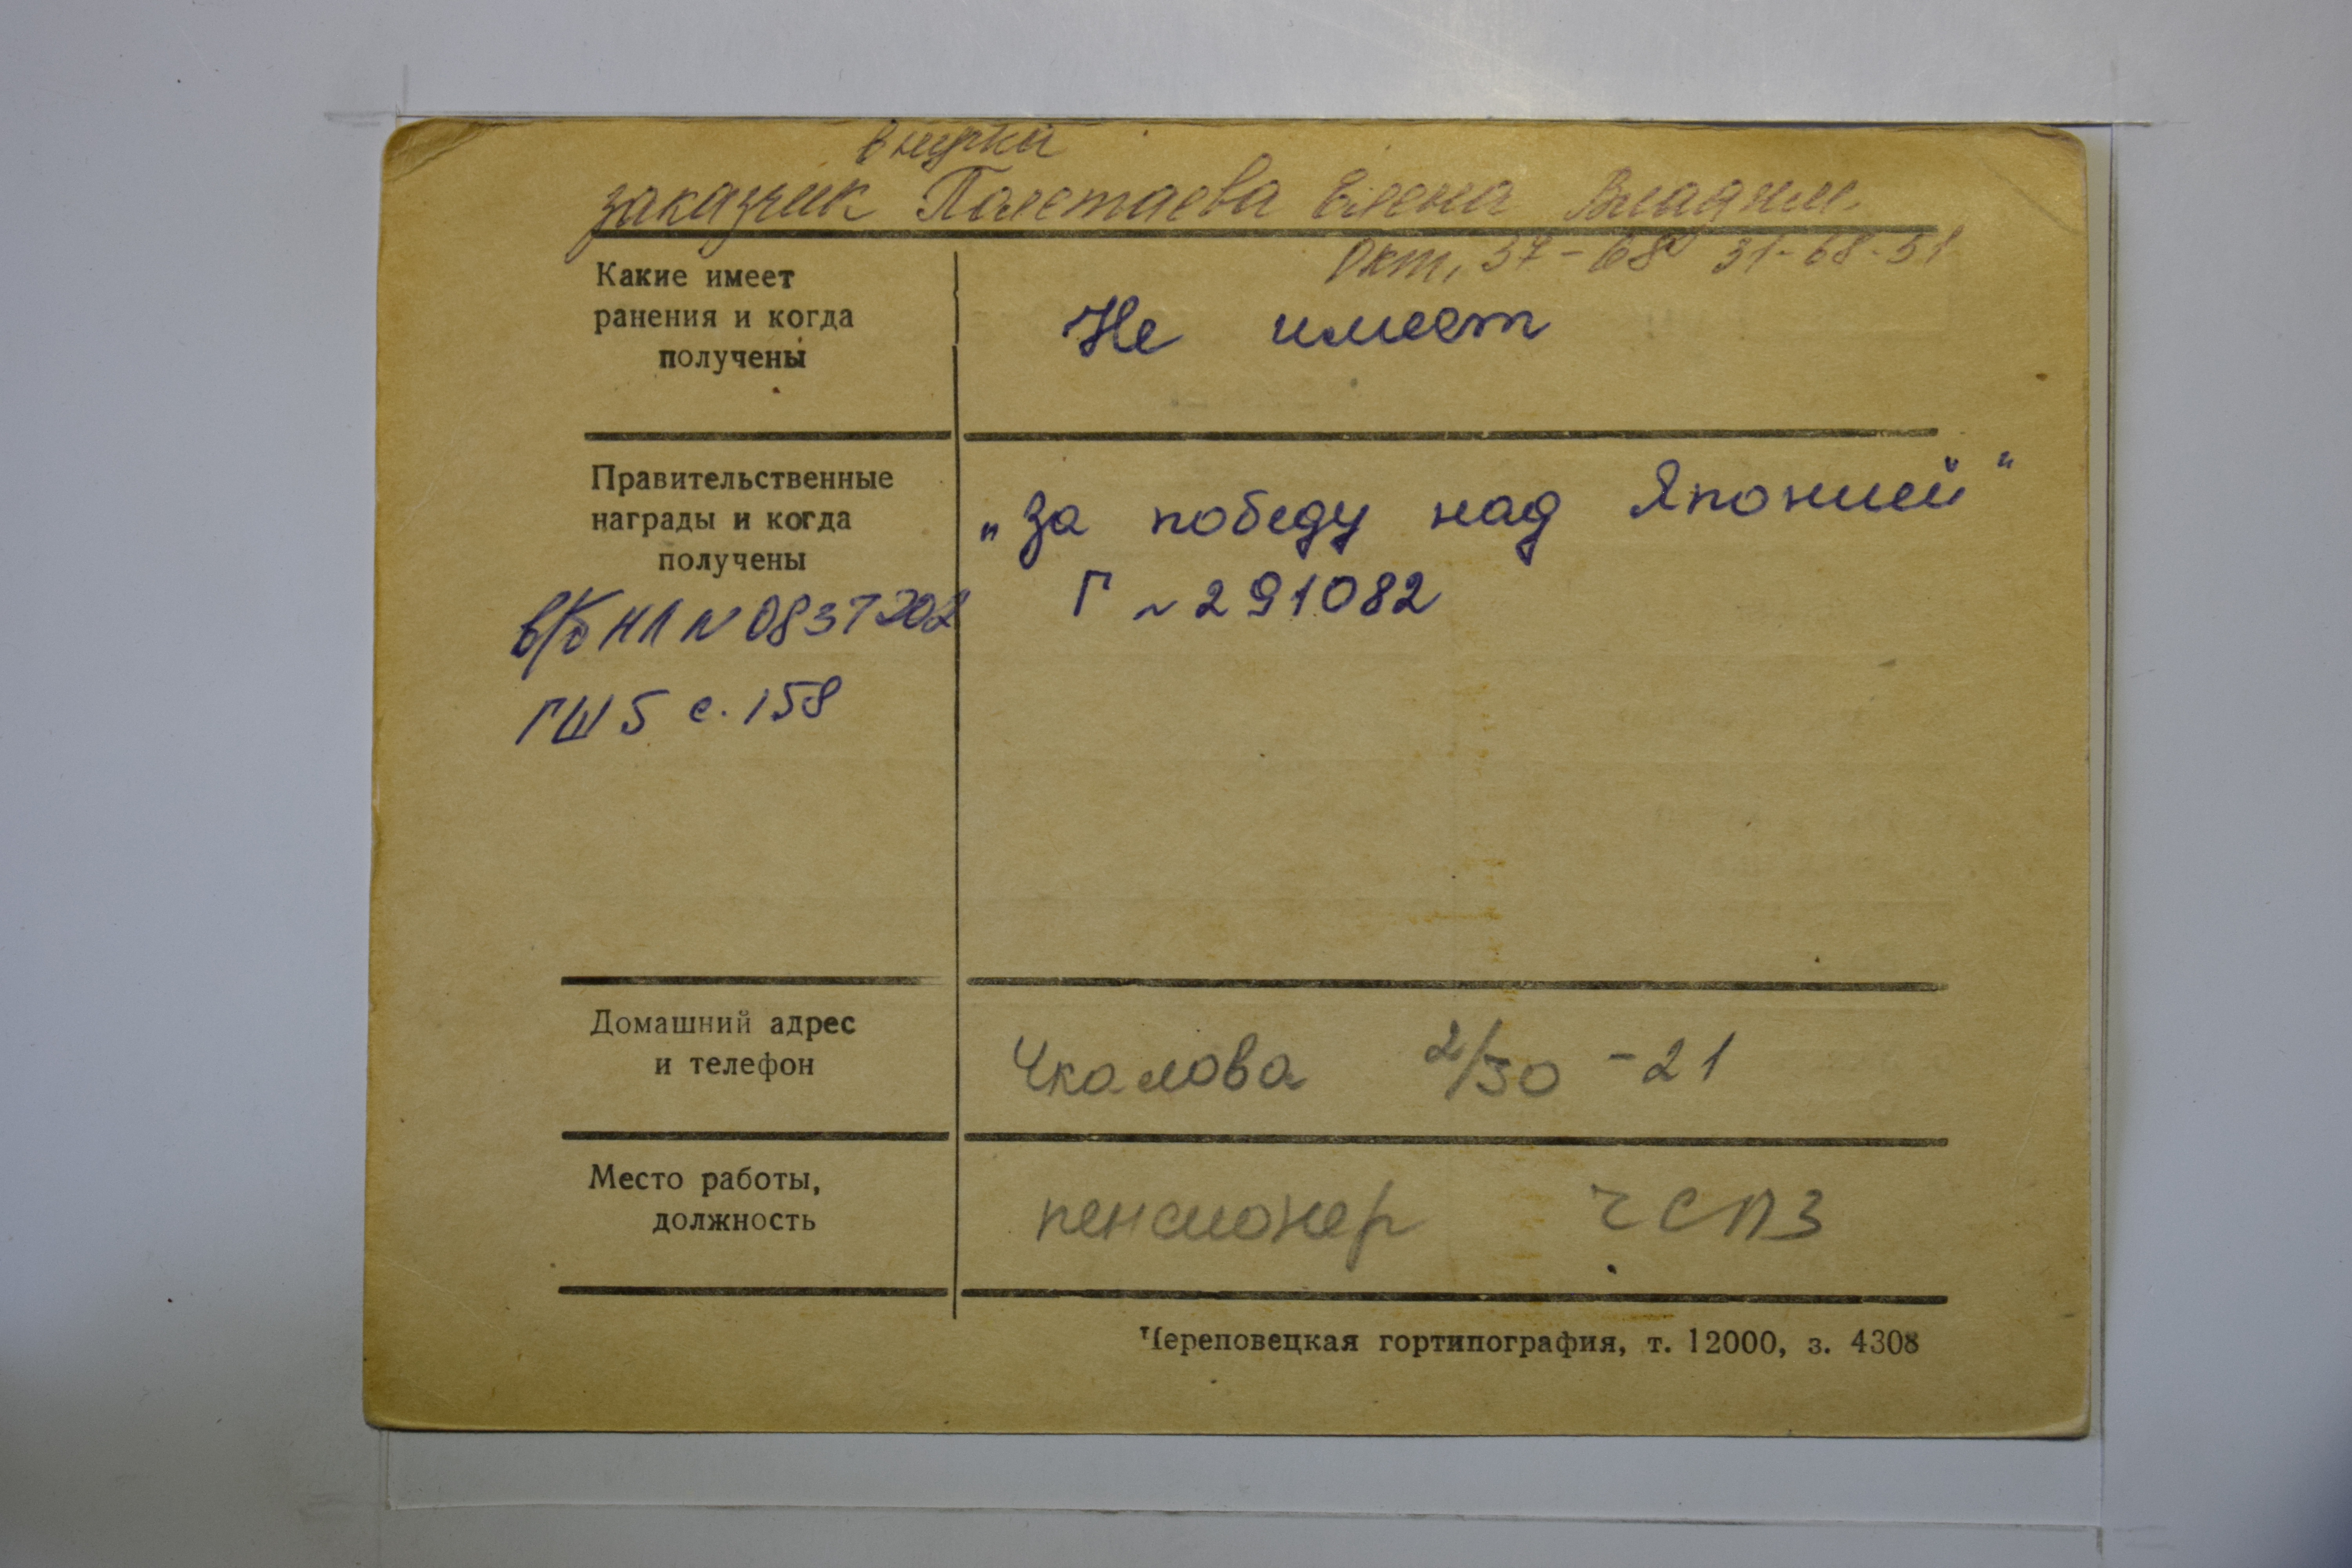 внучка
заказчик Полетаева Елена Владим.
Окт. 37-68 31-68-51
Какие имеет
ранения и когда
получены
Не имеет
Правительственные
награды и когда
получены
„За победу над Японией"
Г №291082
в/б НЛ N 0837202
ГШ 5 с. 158
Домашний адрес
и телефон
Чкалова 2/30 -21
Место работы,
должность
пенсионер ЧСПЗ
Череповецкая гортипография, т. 12000, з. 4308